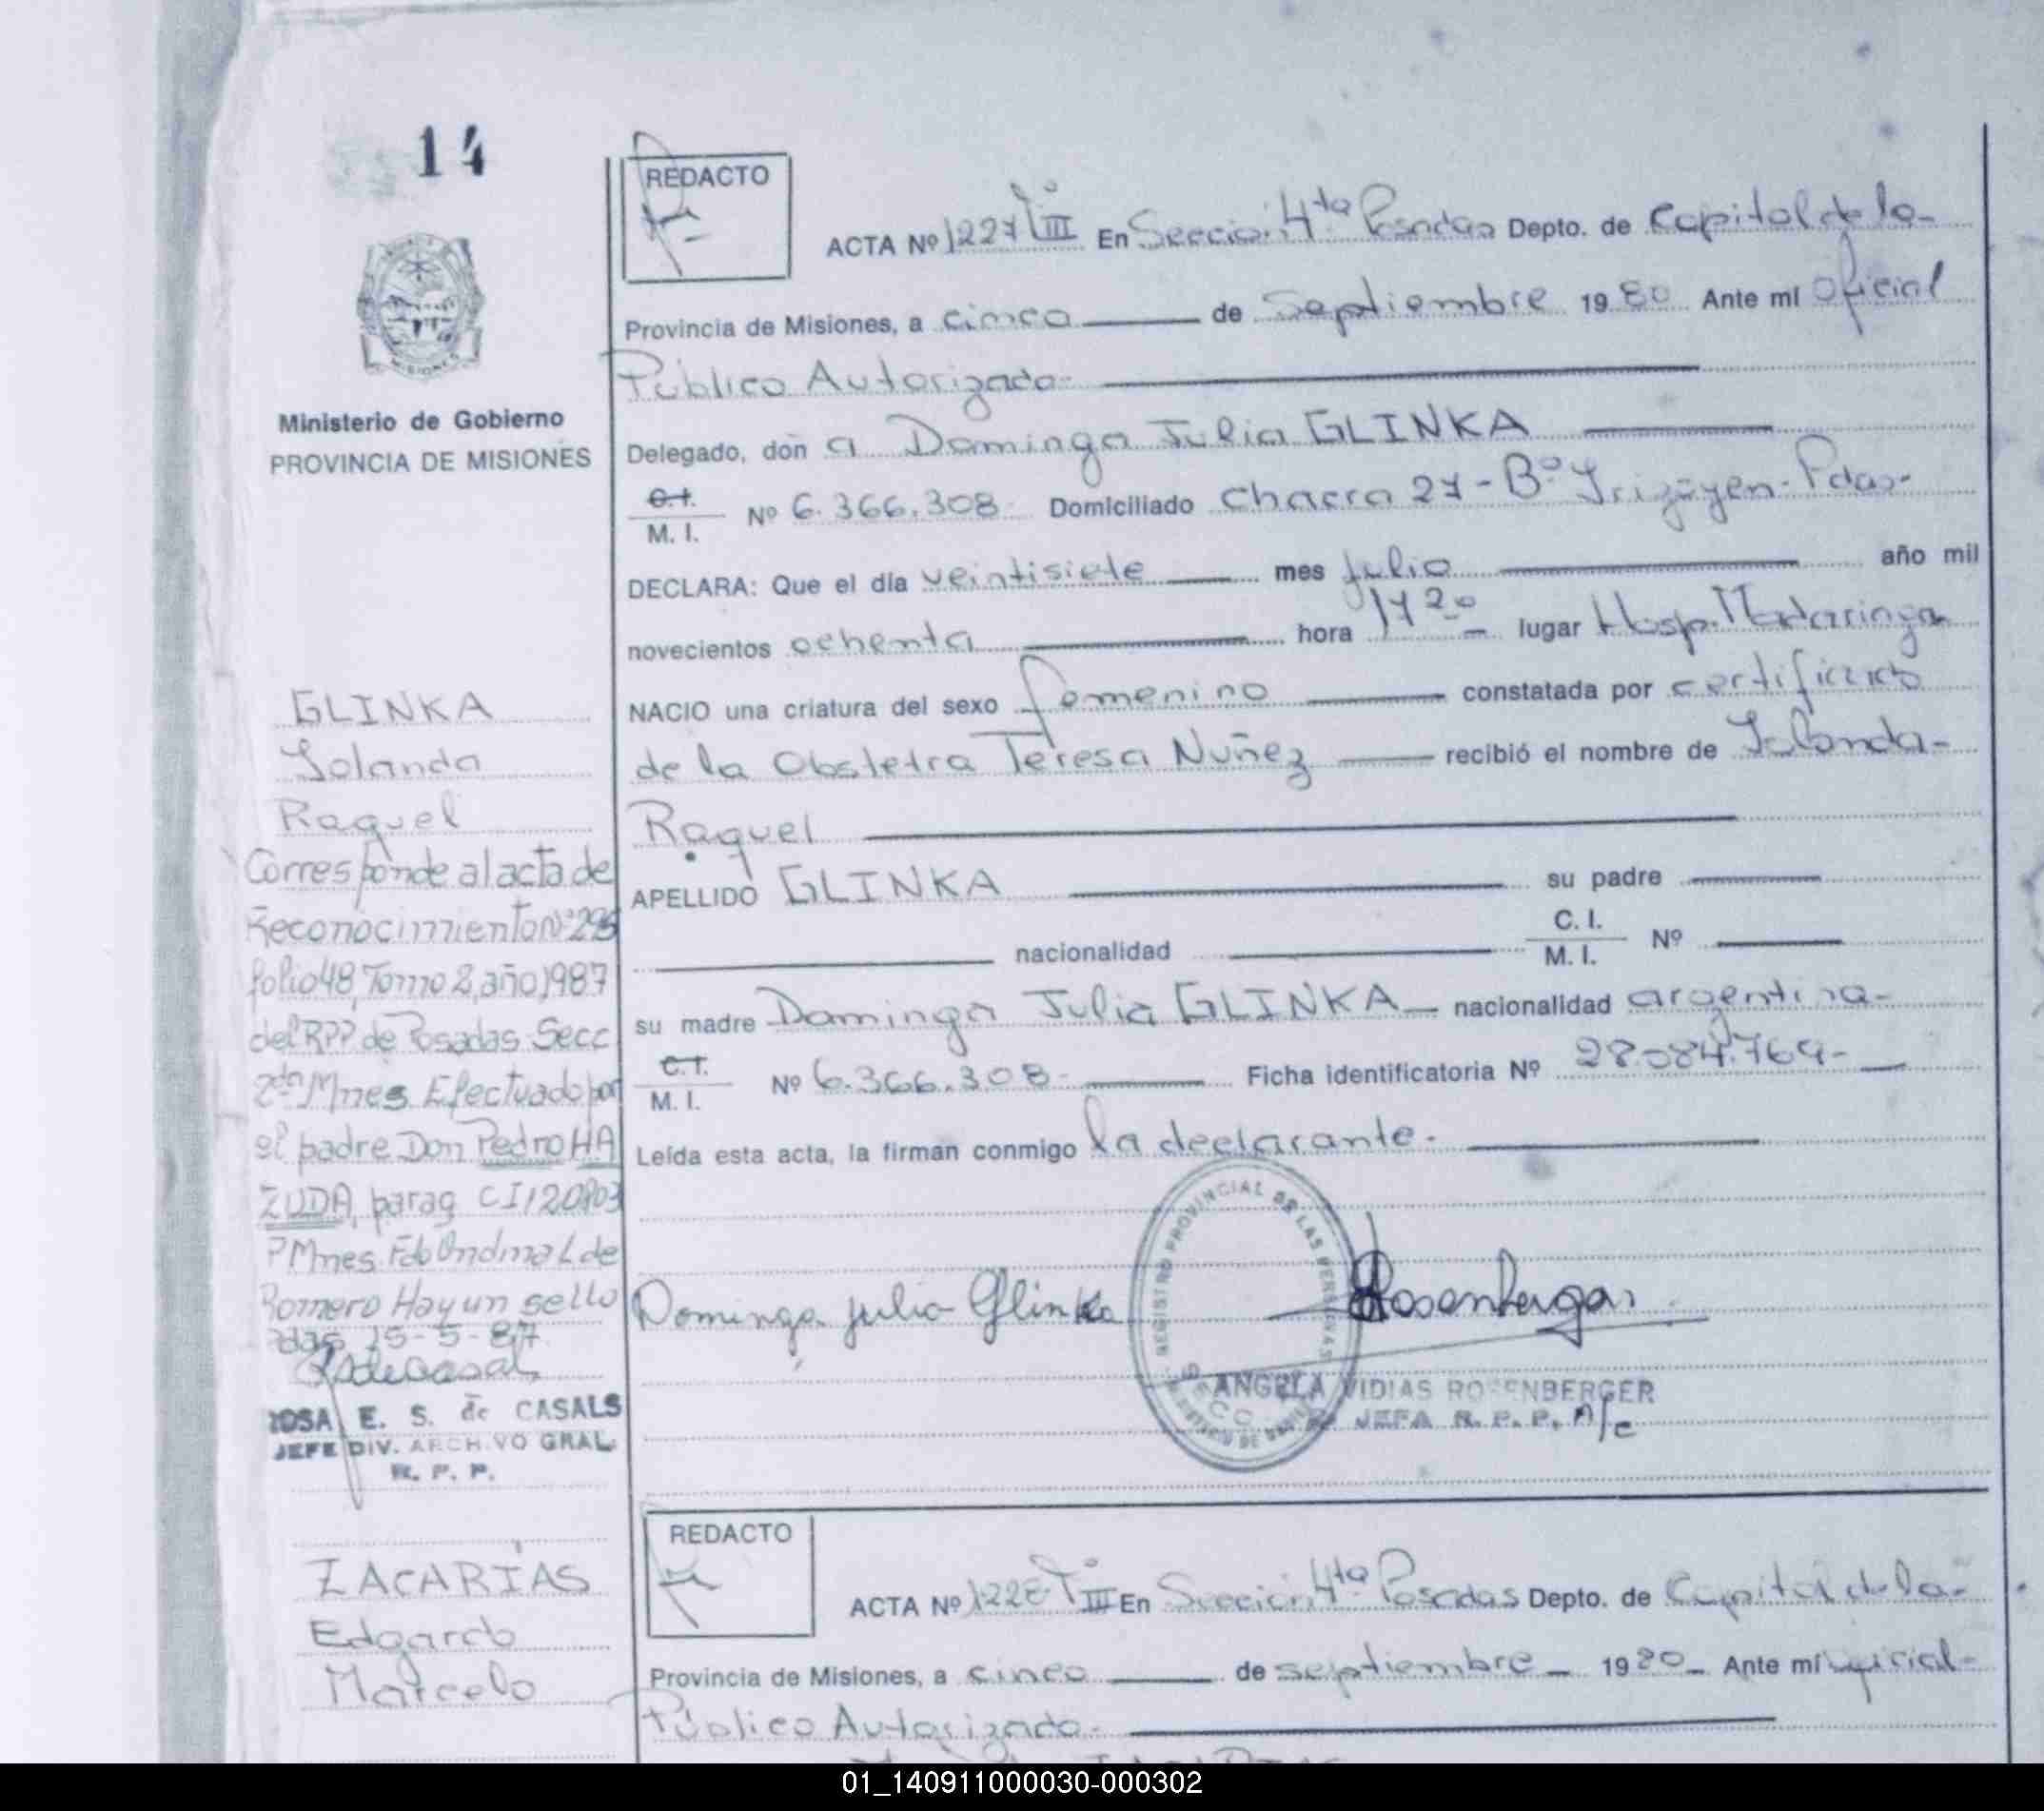 14
Ministerio de Gobierno
PROVINCIA DE MISIONES
GLINKA
Iolanda
Raquel
Corresponde al acta de
Reconocimiento Nº 295
folio 48, Tomo 2, año 1987
del RPP de Posadas Secc
2da Mnes Efectuado por
el padre Don Pedro HA
ZUDA, parag CI 120803
PMnes. Fdo Ondina L de
Romero Hay un sello
Pdas 15-5-87
ROSA E. S. de CASALS
JEFE DIV. ARCHIVO GRAL.
R. P. P.
REDACTO
ACTA Nº 1227 Tº III En Sección 4ta Posadas Depto. de Capital de la-
Provincia de Misiones, a cinco de Septiembre 1980 Ante mí Oficial
Público Autorizado-
Delegado, don a Dominga Julia GLINKA
C.I. M. I. Nº 6.366.308- Domiciliado Chacra 27 - Bº Irigoyen- Pdas-
DECLARA: Que el día veintisiete mes julio año mil
novecientos ochenta hora 17 20 lugar Hosp. Madariaga
NACIO una criatura del sexo femenino constatada por certificado
de la Obstetra Teresa Nuñez recibió el nombre de Iolanda-
Raquel
APELLIDO GLINKA su padre
nacionalidad C. I. M. I. Nº
su madre Dominga Julia GLINKA nacionalidad argentina-
C.I. M. I. Nº 6.366.308- Ficha identificatoria Nº 28.084.769-
Leída esta acta, la firman conmigo la declarante.-
REGISTRO PROVINCIAL DE LAS PERSONAS
Dominga julia Glinka Rosenberger
ANGELA VIDIAS ROSENBERGER
JEFA R. P. P. A/c
ZACARIAS
Edgardo
Marcelo
REDACTO
ACTA Nº 1228 Tº III En Sección 4ta Posadas Depto. de Capital de la-
Provincia de Misiones, a cinco de septiembre 1980 Ante mí oficial-
Público Autorizado.-
01_140911000030-000302